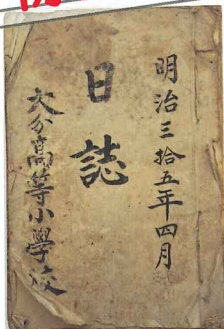 明治三拾五年四月
日誌
大分高等小學校